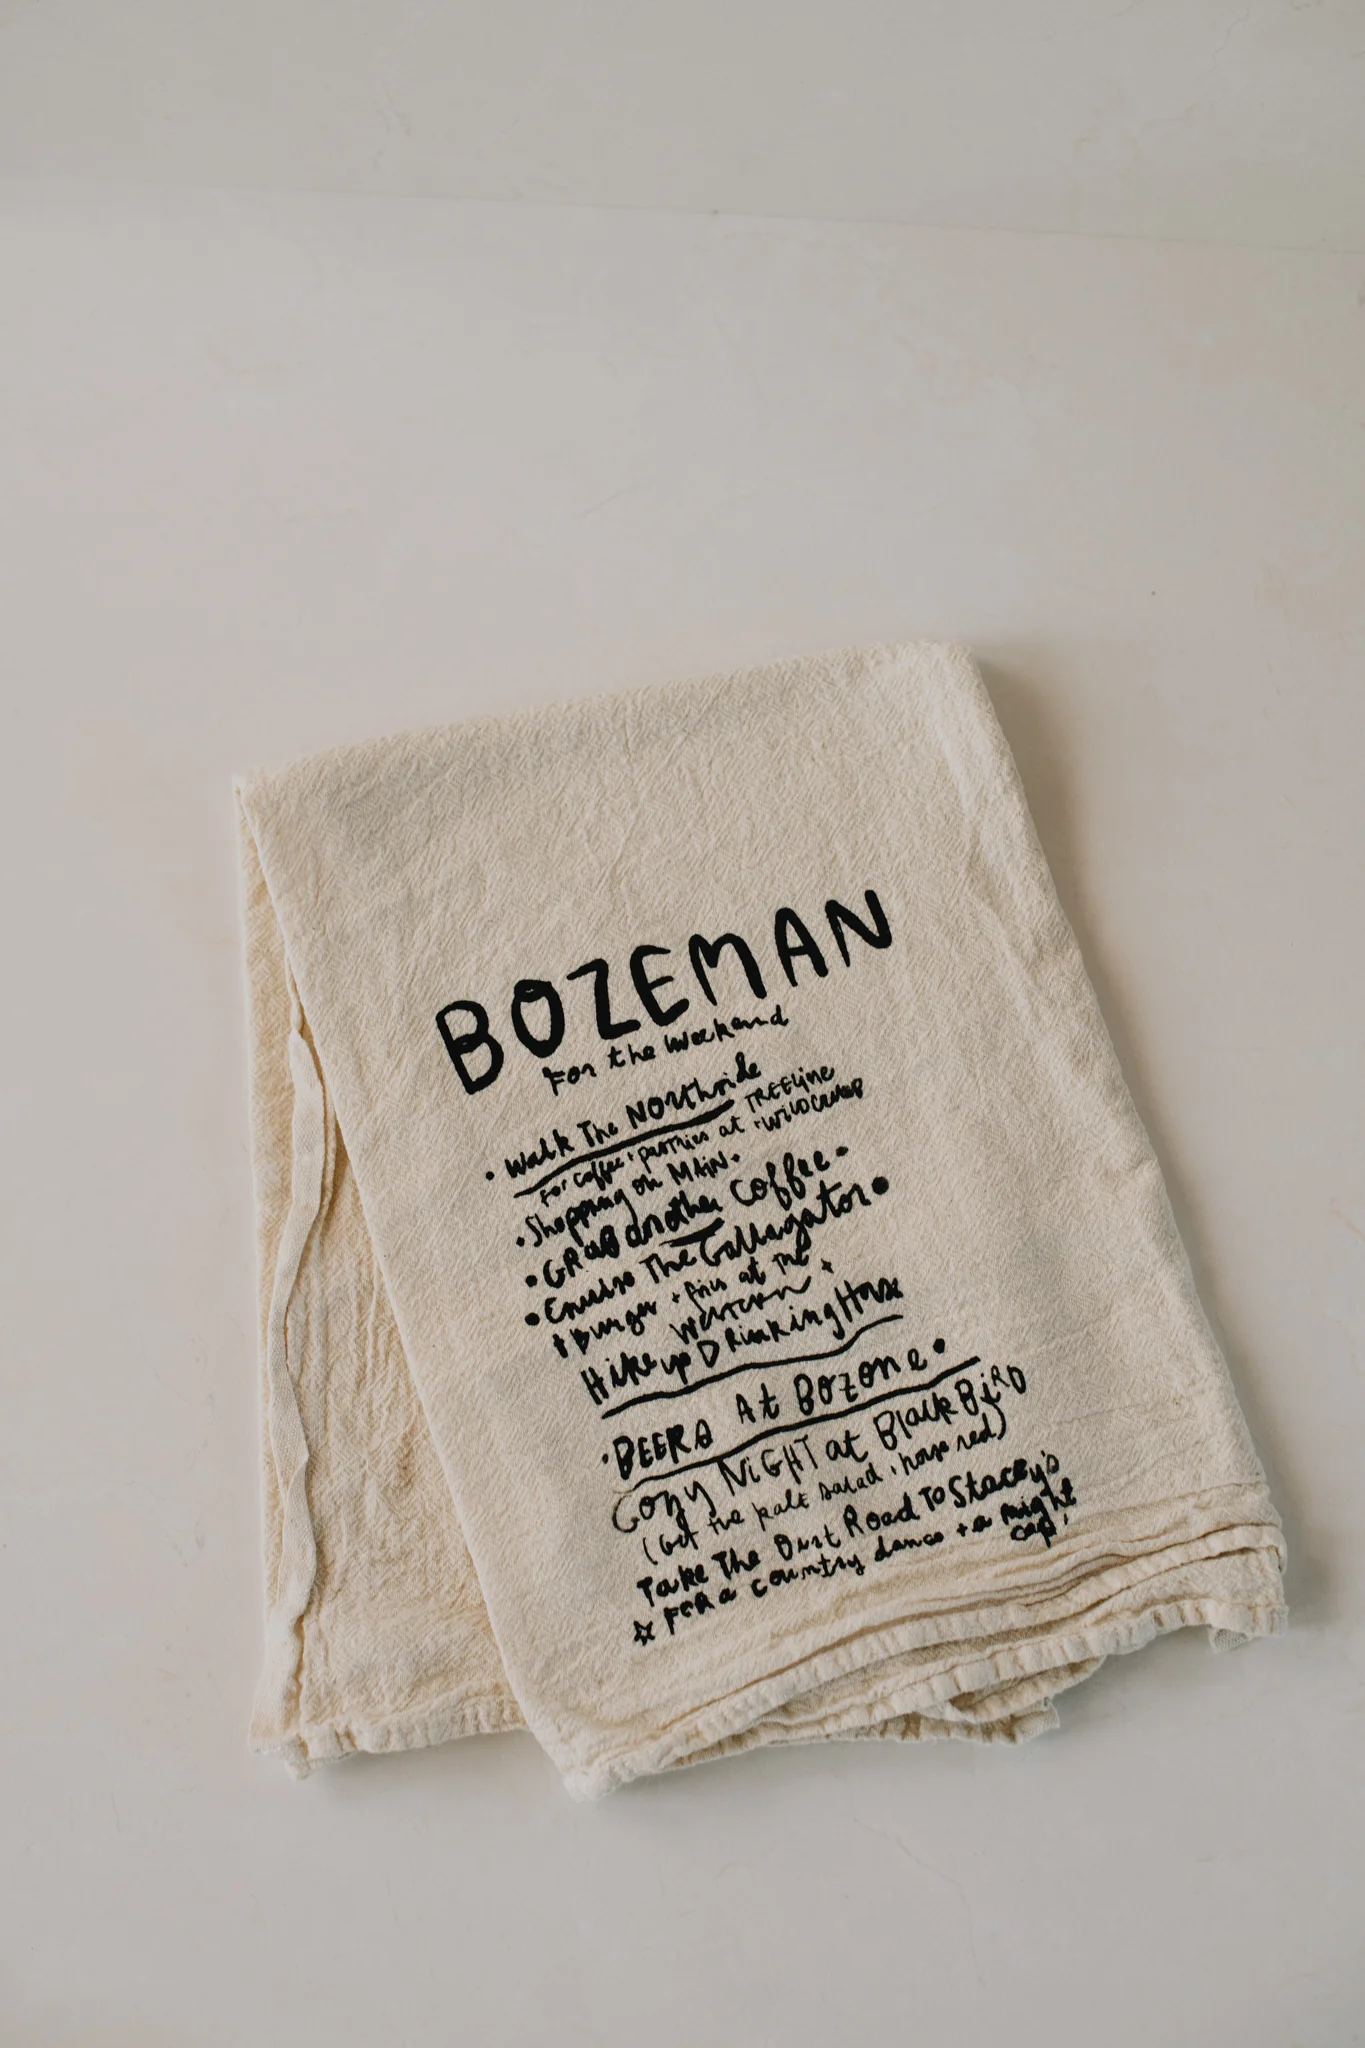 BOZEMAN
For the weekend
• Walk The Northside
For coffee + pastries at • TREELINE
• WILDCRUMB
• Shopping on MAIN •
• GRAB another coffee •
• Cruise The Gallagator •
+ Burger + fries at The
Western +
Hike up Drinking Horse
• BEERS At BOZONE •
Cozy NiGHT at BlackBiRD
(Get the kale salad + house red)
Take The Dirt Road To Stacey's
☆ FOR a country dance + a night
cap!